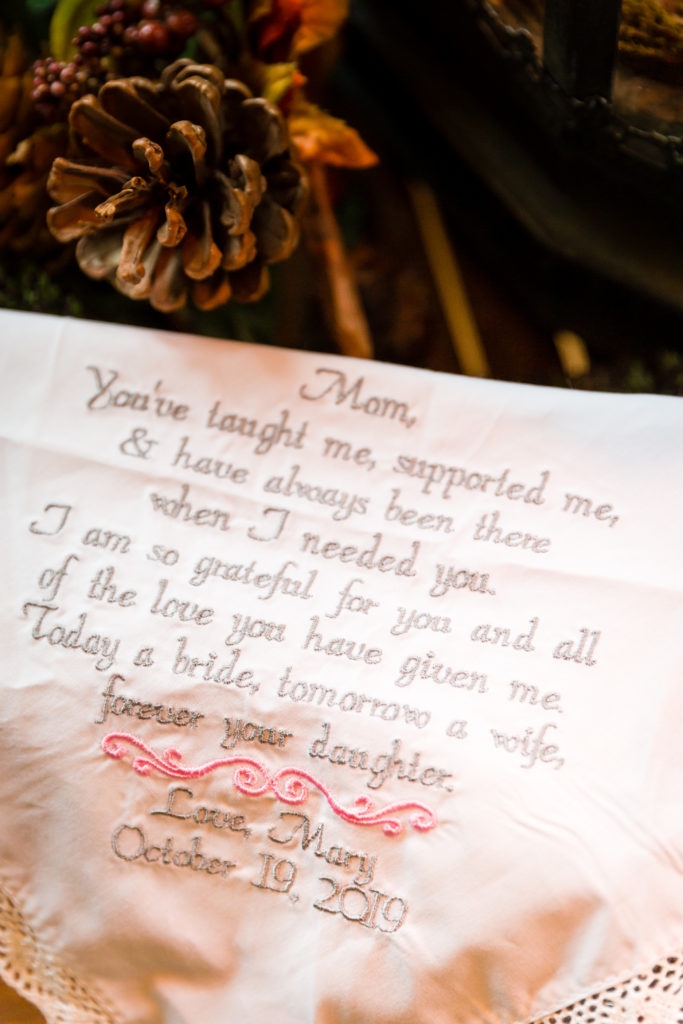 Mom,
You've taught me, supported me,
& have always been there
when I needed you.
I am so grateful for you and all
of the love you have given me.
Today a bride, tomorrow a wife,
forever your daughter.
Love, Mary
October 19, 2019